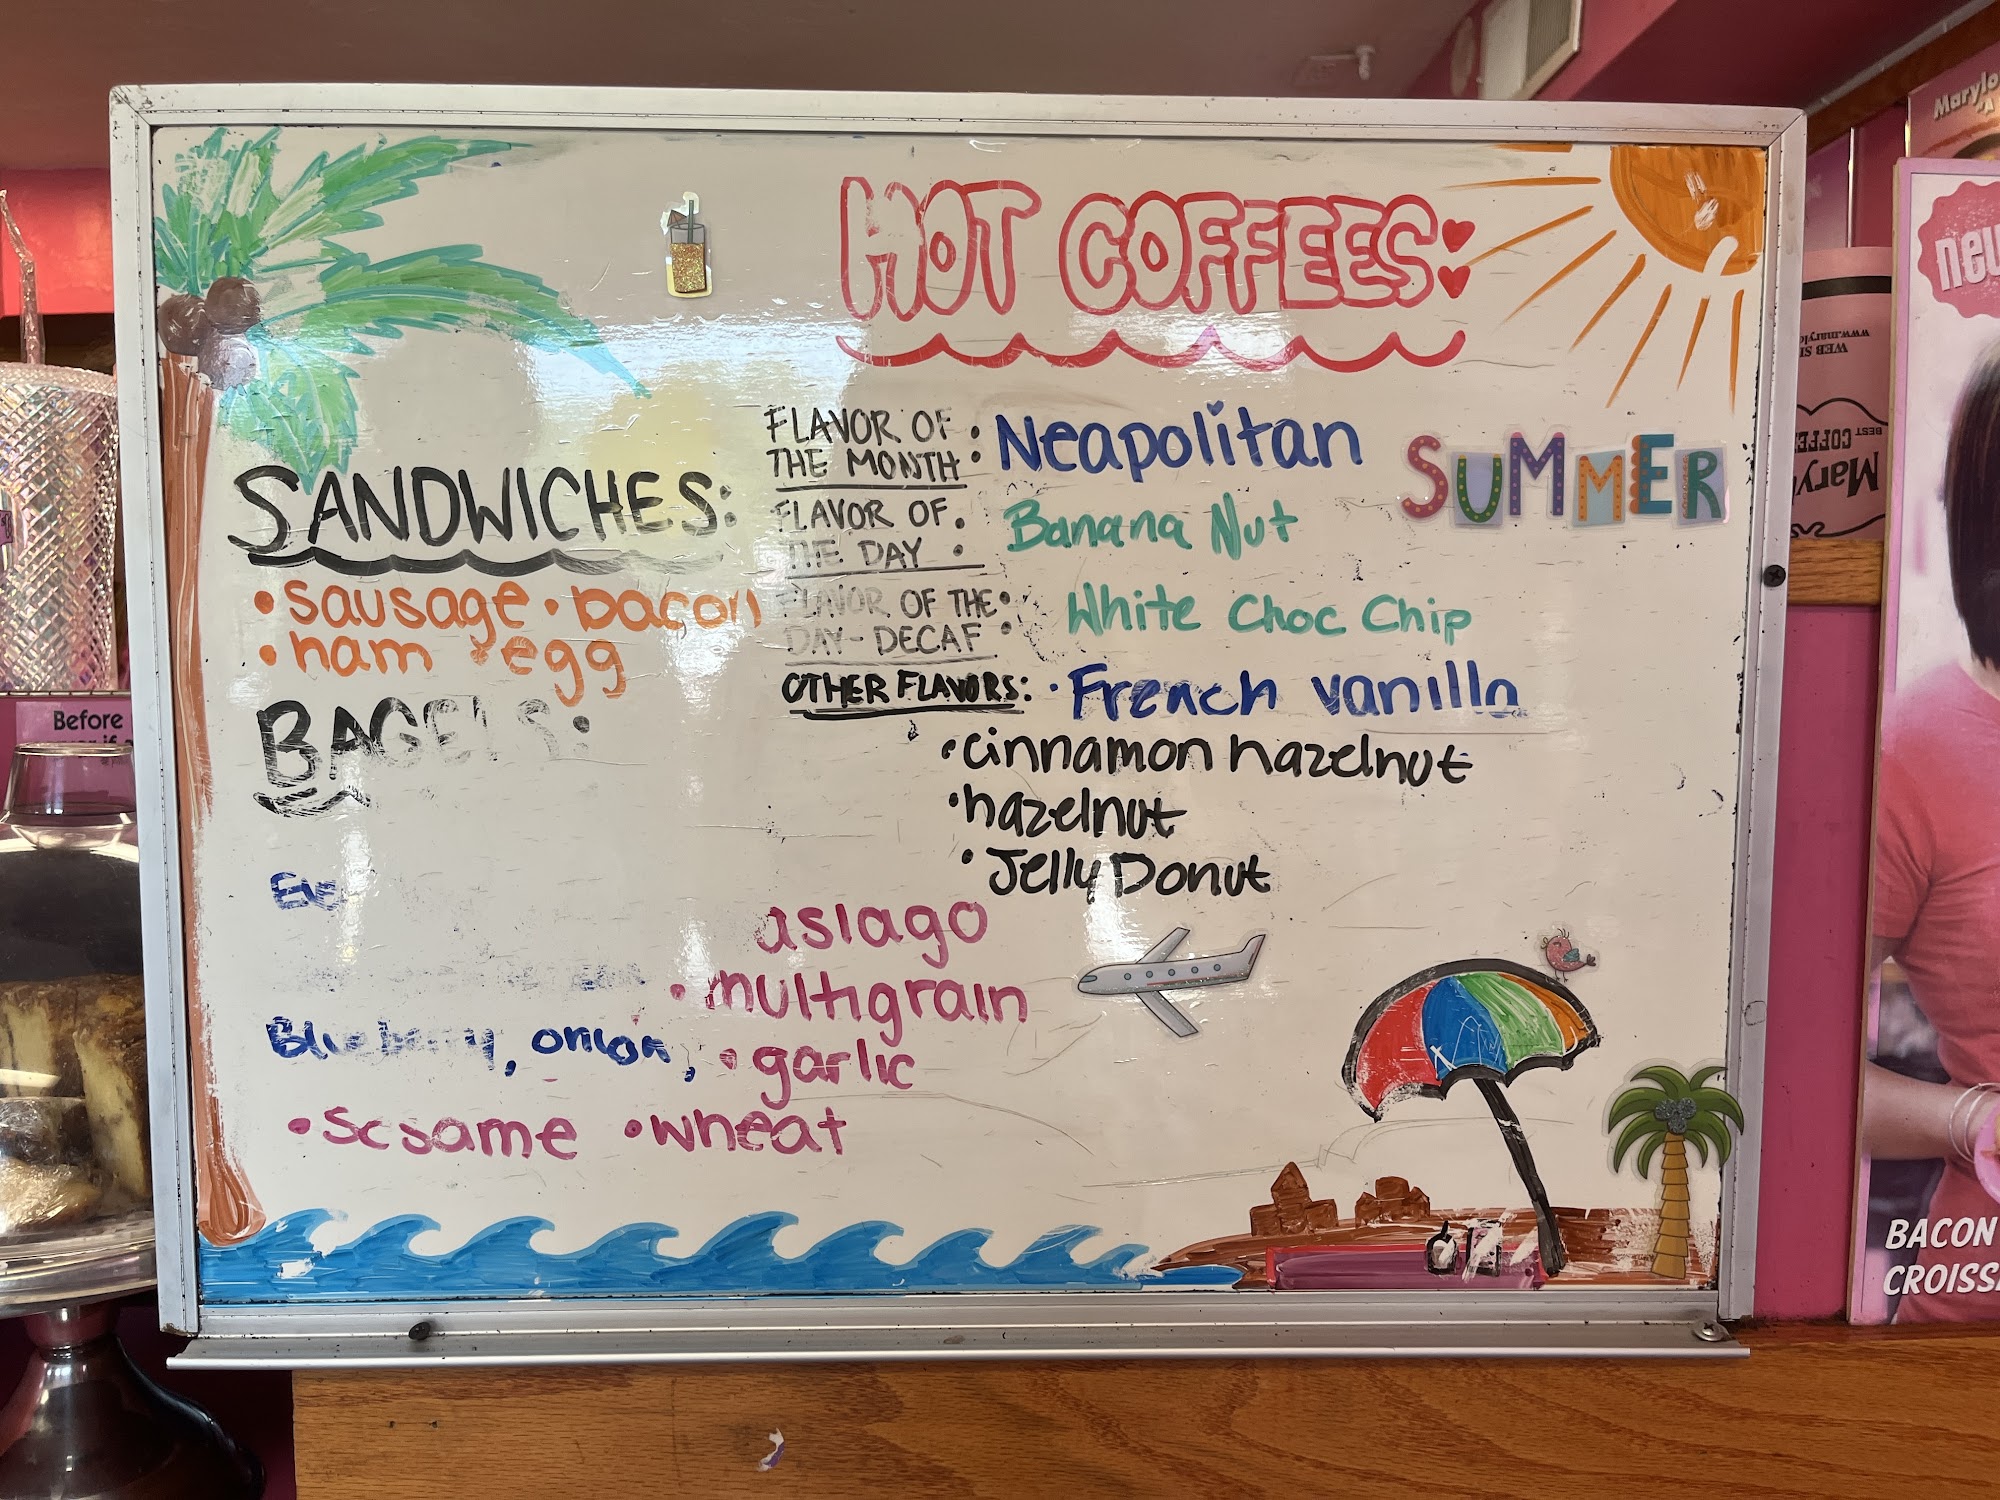 HOT COFFEES:
SANDWICHES:
• sausage • bacon
• ham • egg
BAGELS:
Blueberry, onion,
asiago
• multigrain
• garlic
• Sesame • wheat
FLAVOR OF
THE MONTH : Neapolitan
FLAVOR OF
THE DAY : Banana Nut
FLAVOR OF THE
DAY - DECAF : White Choc Chip
OTHER FLAVORS: • French vanilla
• cinnamon hazelnut
• hazelnut
• Jelly Donut
SUMMER
Before
new
BACON
WEB
BEST
COFFEE